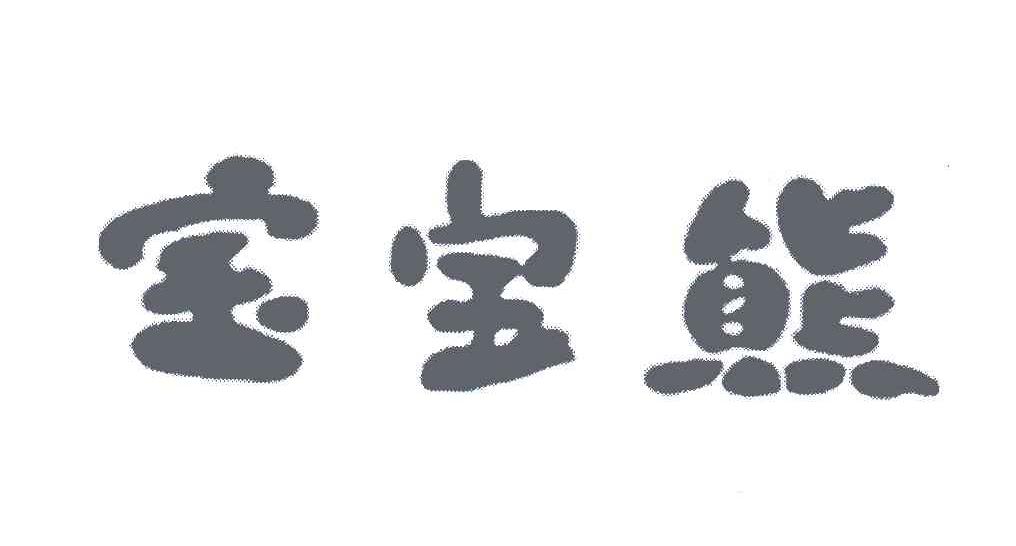 宝宝熊